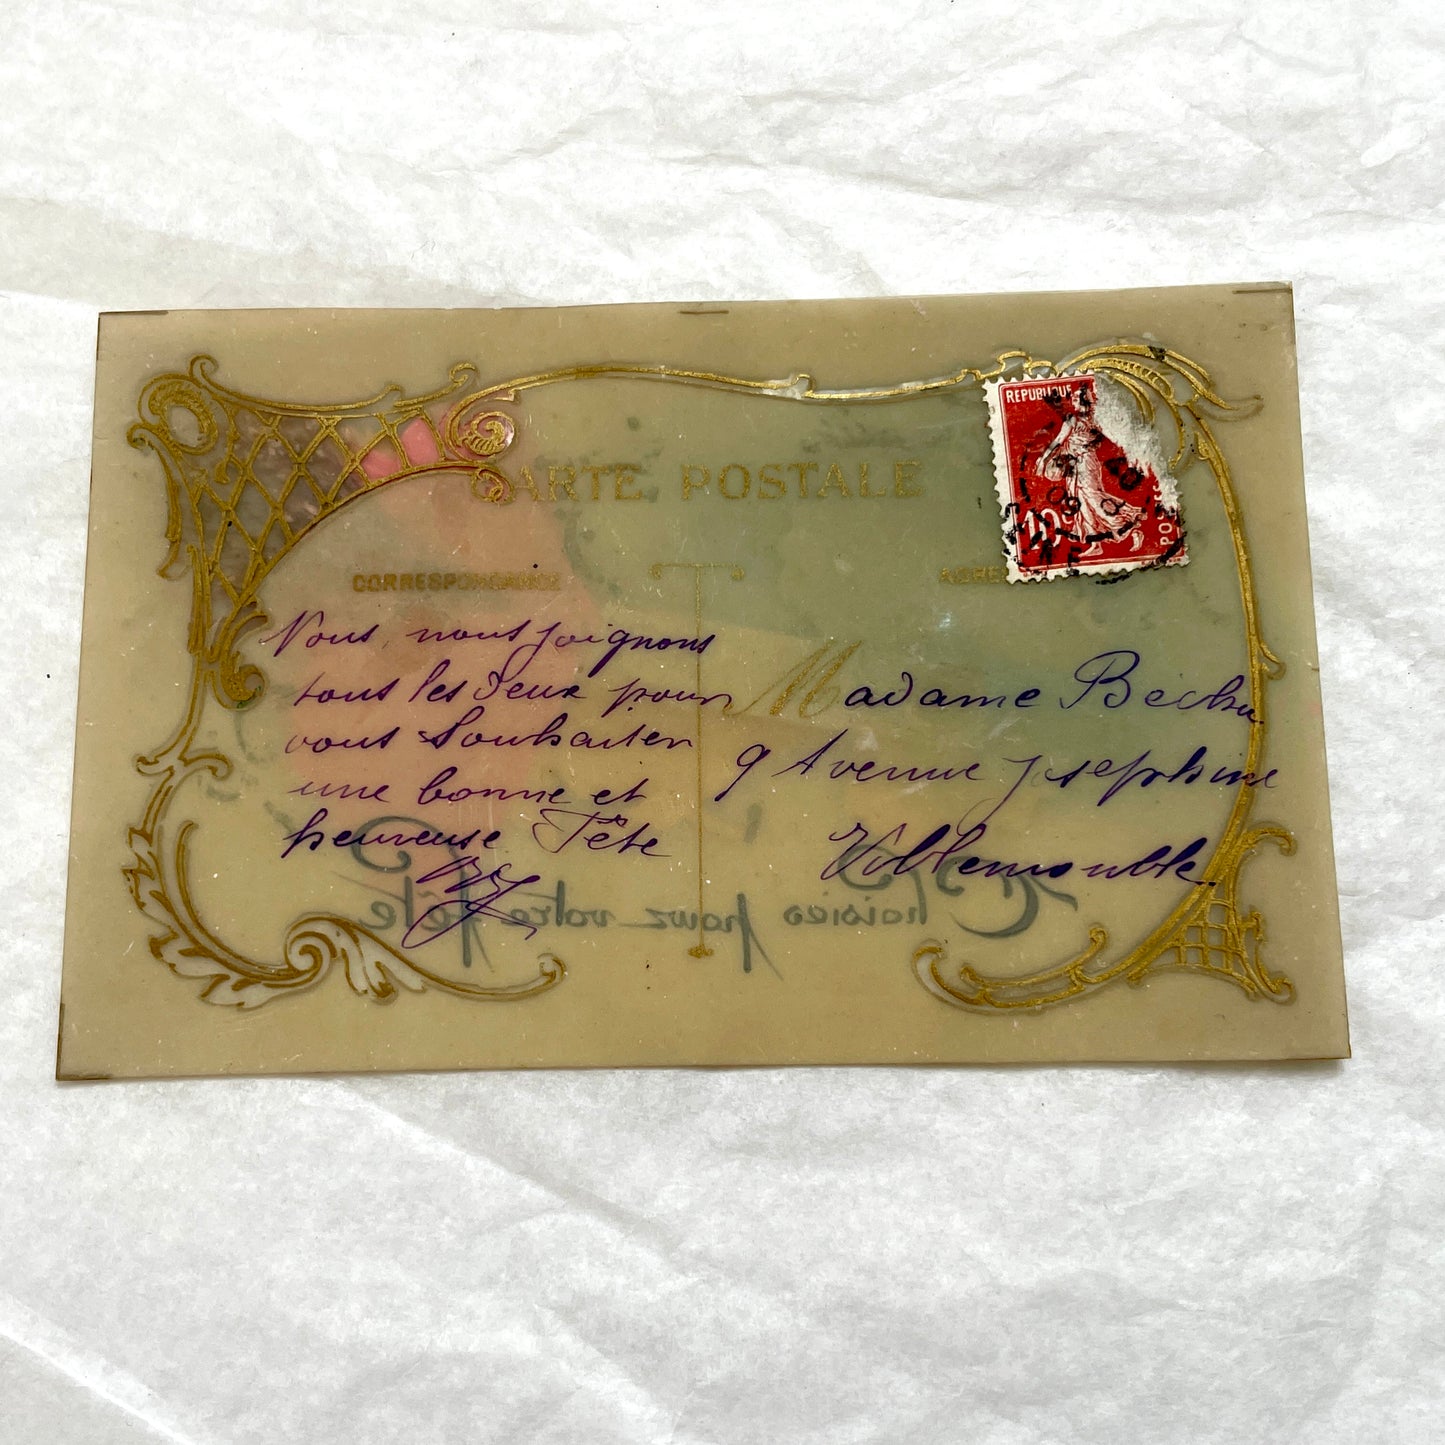 CARTE POSTALE
REPUBLIQUE
10c
POS
CORRESPONDANCE
Nous nous joignons
tous les deux pour
vous souhaiter
une bonne et
heureuse Fête
Madame
9 Avenue Josephine
Villemomble
Choisies pour votre fête